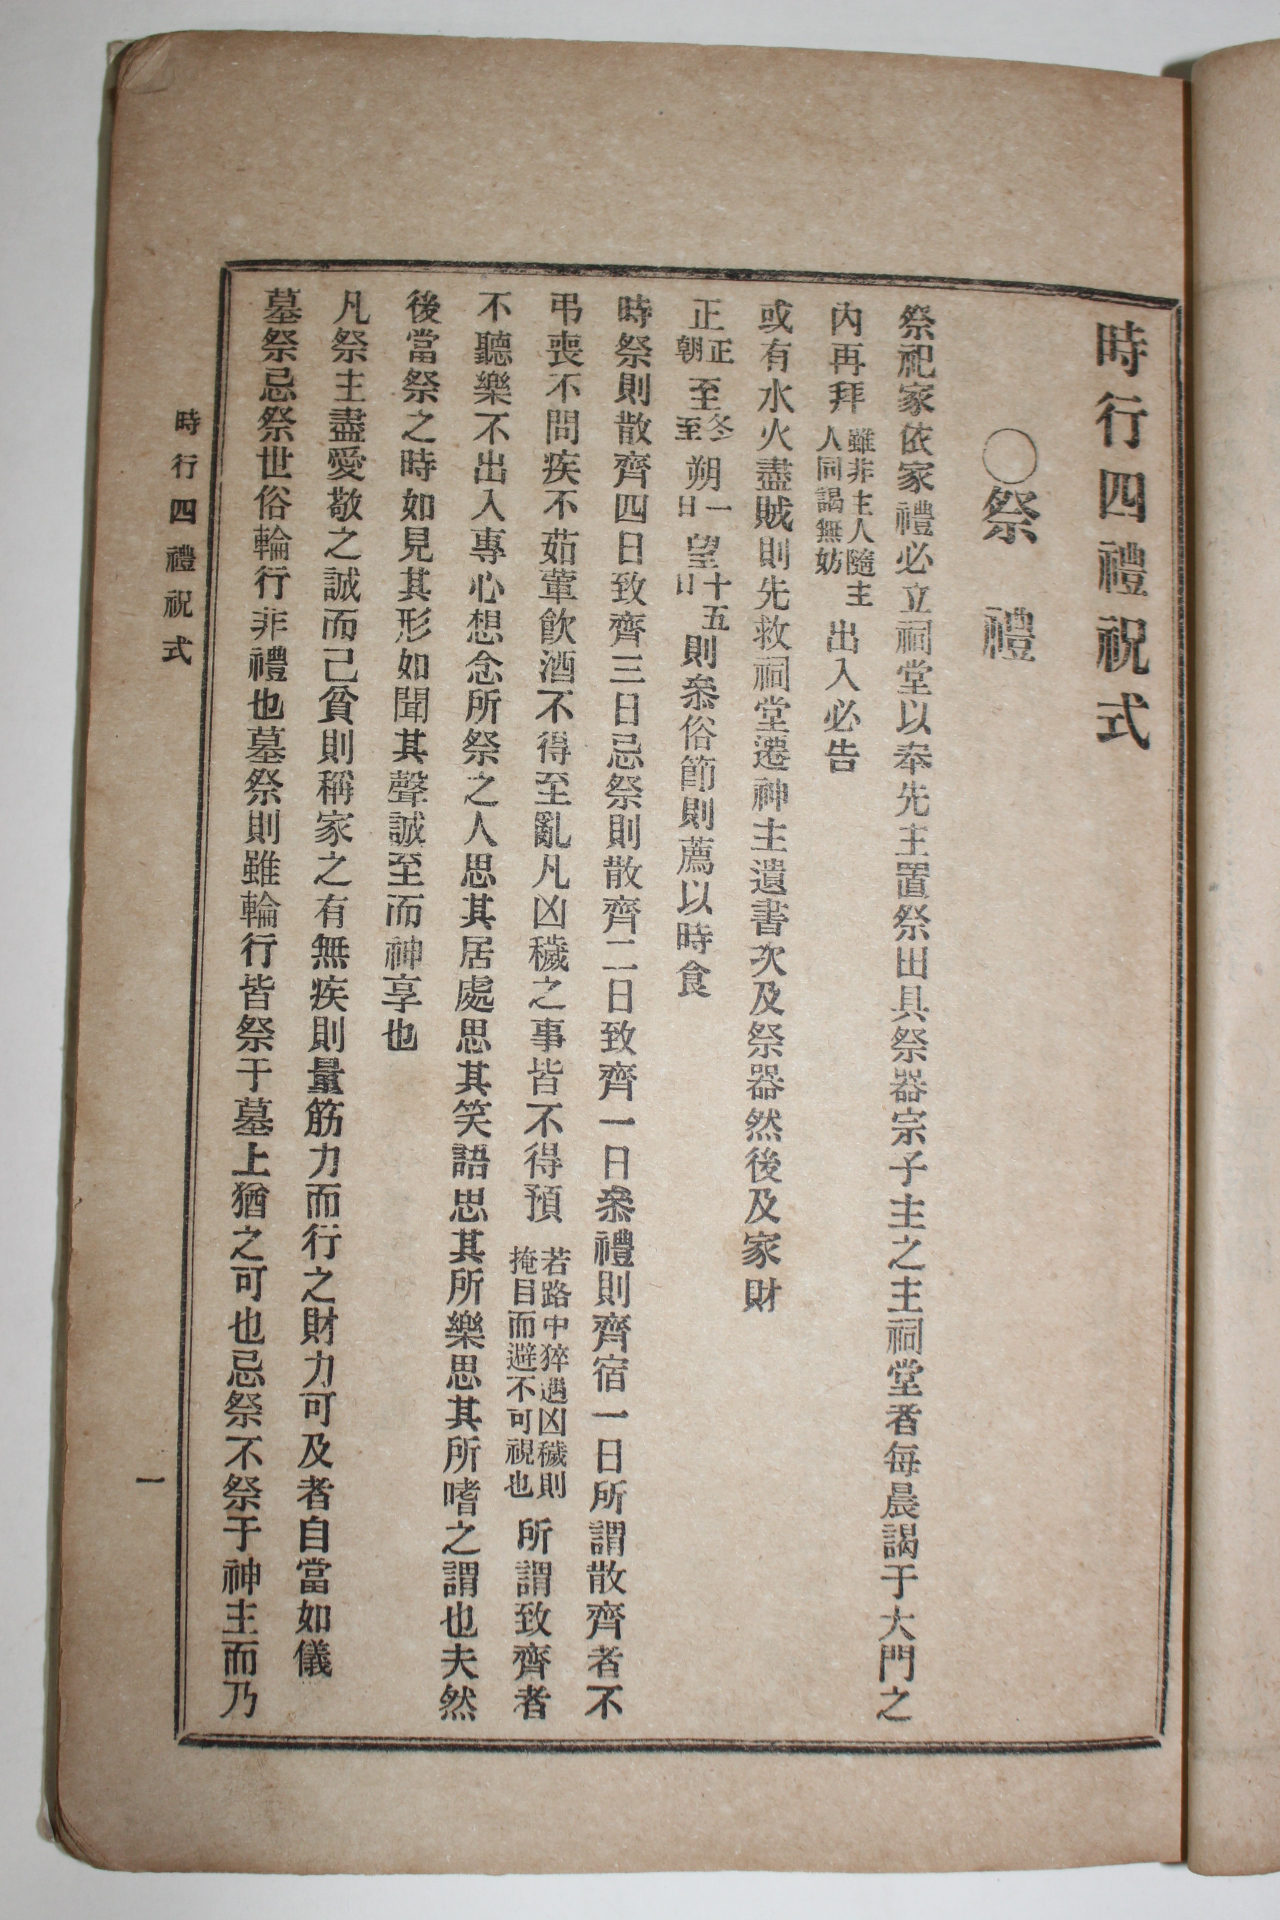 時行四禮祝式
○祭禮
祭祀家依家禮必立祠堂以奉先主置祭田具祭器宗子主之主祠堂者每晨謁于大門之
內再拜雖非主人隨主人同謁無妨出入必告
或有水火盡賊則先救祠堂遷神主遺書次及祭器然後及家財
正正朝至冬至朔一日望十五日則叅俗節則薦以時食
時祭則散齊四日致齊三日忌祭則散齊二日致齊一日叅禮則齊宿一日所謂散齊者不
弔喪不問疾不茹葷飮酒不得至亂凡凶穢之事皆不得預若路中猝遇凶穢則掩目而避不可視也所謂致齊者
不聽樂不出入專心想念所祭之人思其居處思其笑語思其所樂思其所嗜之謂也夫然
後當祭之時如見其形如聞其聲誠至而神享也
凡祭主盡愛敬之誠而已貧則稱家之有無疾則量筋力而行之財力可及者自當如儀
墓祭忌祭世俗輪行非禮也墓祭則雖輪行皆祭于墓上猶之可也忌祭不祭于神主而乃
時行四禮祝式
一